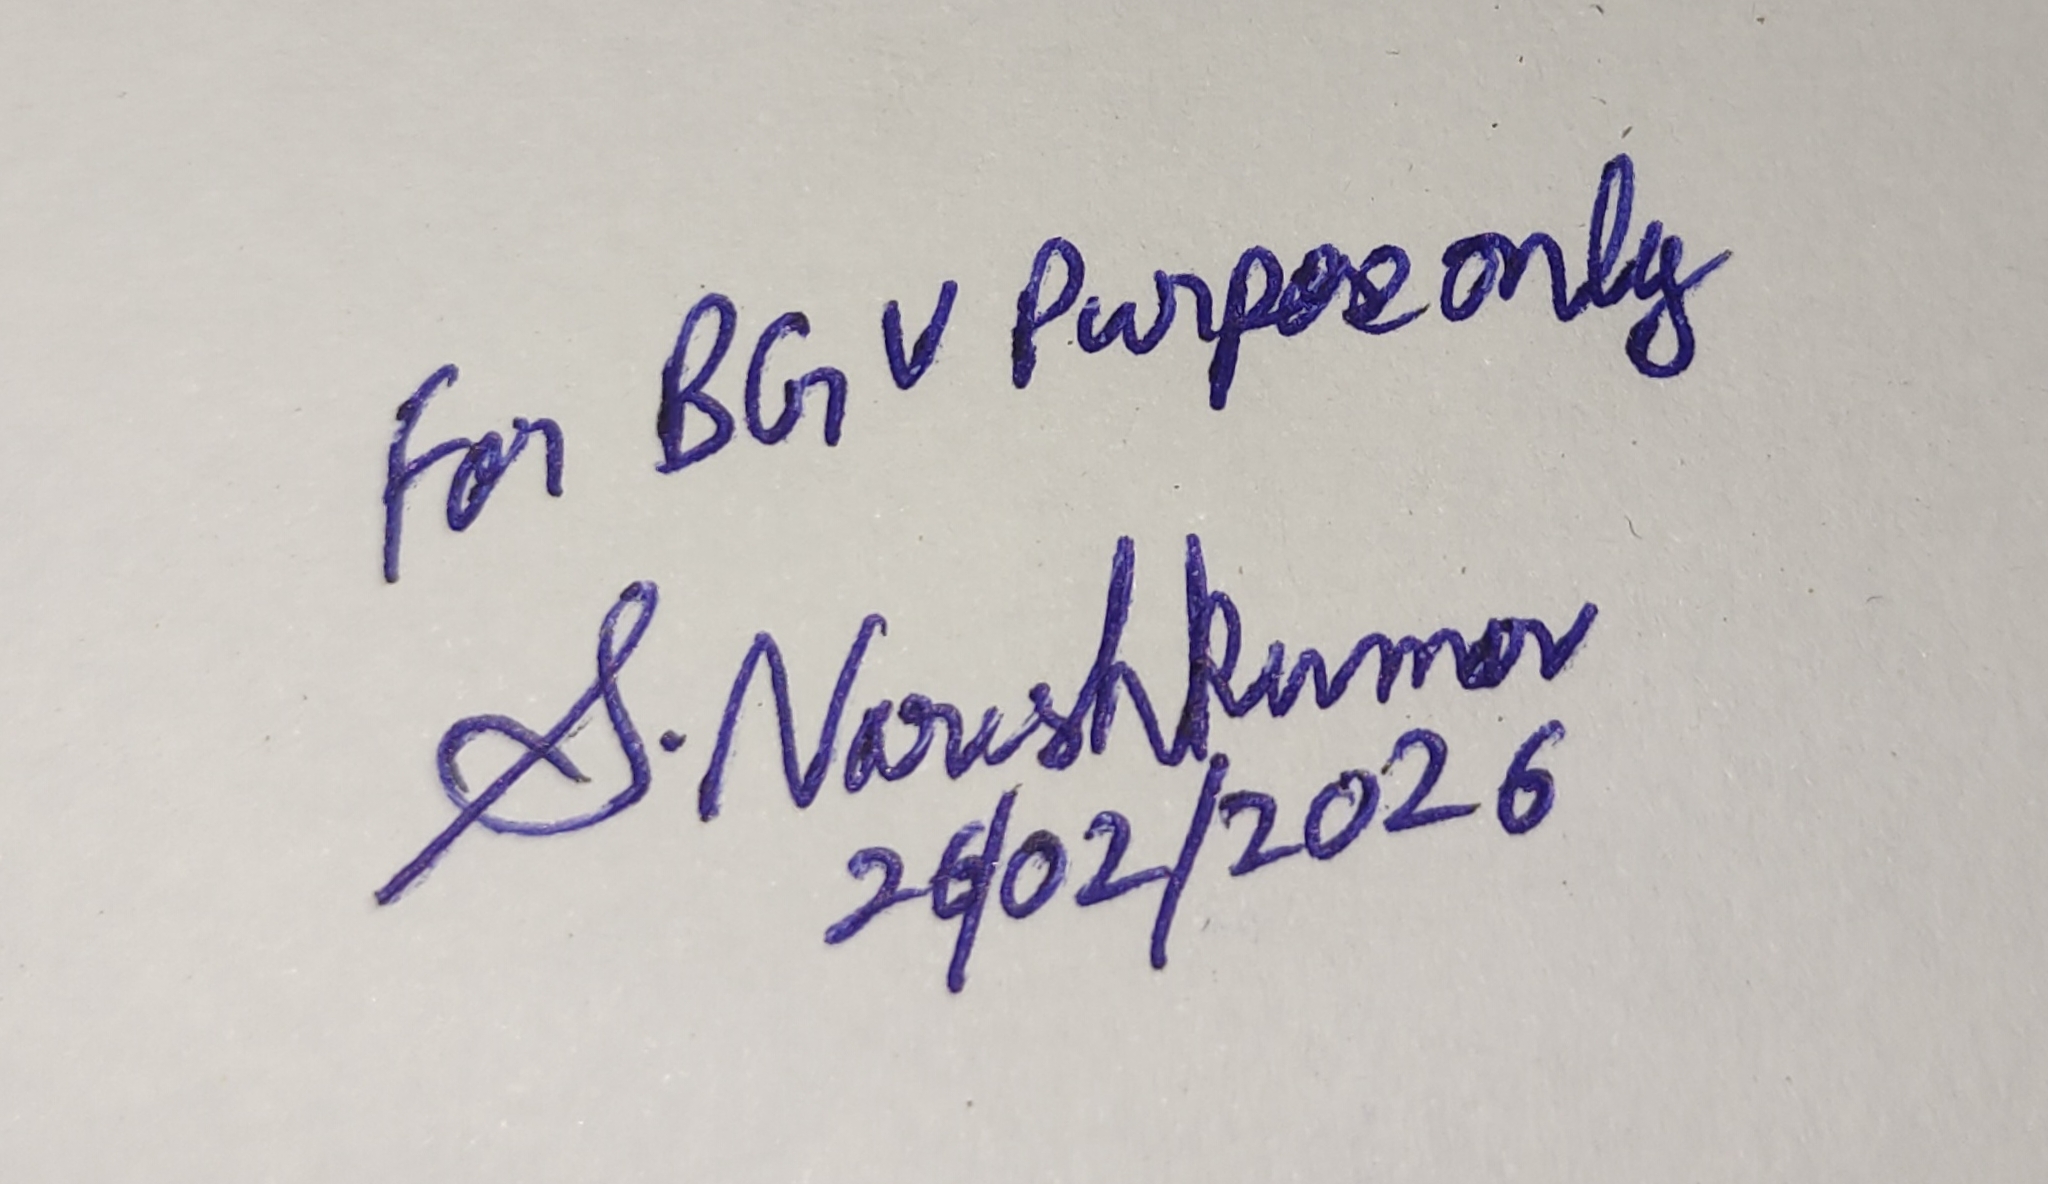 For BGV Purpose only
S. Nareshkumar
26/02/2026